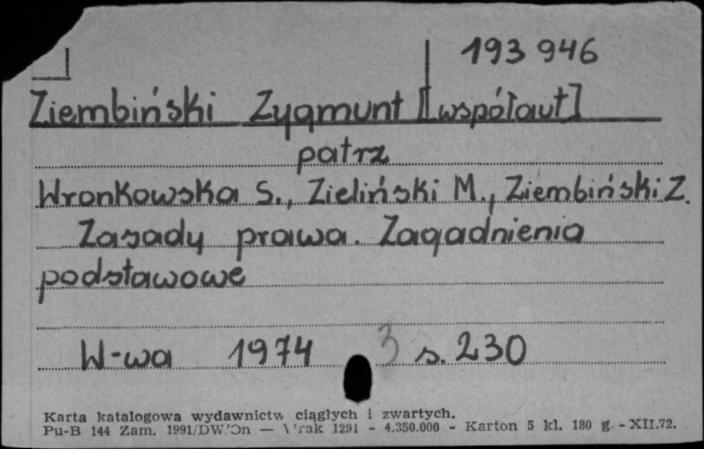 193 946
Ziembiński Zygmunt [współaut]
patrz
Wronkowska S., Zieliński M., Ziembiński Z.
Zasady prawa. Zagadnienia
podstawowe
W-wa 1974 3 s. 230
Karta katalogowa wydawnictw ciągłych i zwartych.
Pu-B 144 Zam. 1991/DW. — 1291 - 4.350.000 - Karton 5 kl. 180 g. - XII.72.